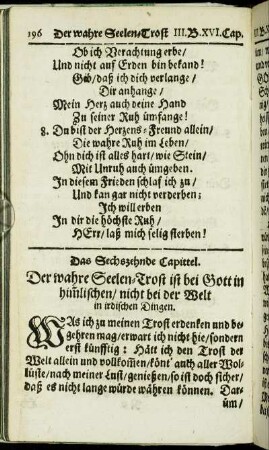 196 Der wahre Seelen/Trost III.B.XVI.Cap.
Ob ich Verachtung erbe/
Und nicht auf Erden bin bekand!
Gib/ daß ich dich verlange/
Dir anhange/
Mein Hertz auch deine Hand
Zu seiner Ruh ümfange!
8. Du bist der Hertzens-Freund allein/
Die wahre Ruh im Leben/
Ohn dich ist alles hart/ wie Stein/
Mit Unruh auch ümgeben.
In diesem Frieden schlaf ich zu/
Und kan gar nicht verderben;
Ich will erben
In dir die höchste Ruh/
HErr/ laß mich selig sterben!
Das Sechszehnde Capittel.
Der wahre Seelen-Trost ist bei Gott in
him̃lischen/ nicht bei der Welt
in irdischen Dingen.
WAs ich zu meinen Trost erdenken und be-
gehren mag/ erwart ich nicht hie/ sondern
erst künfftig: Hätt ich den Trost der
Welt allein und vollkom̃en/ könt auch aller Wol-
lüste/ nach meiner Lust/ genießen/ so ist doch sicher/
daß es nicht lange würde währen können. Dar-
üm/